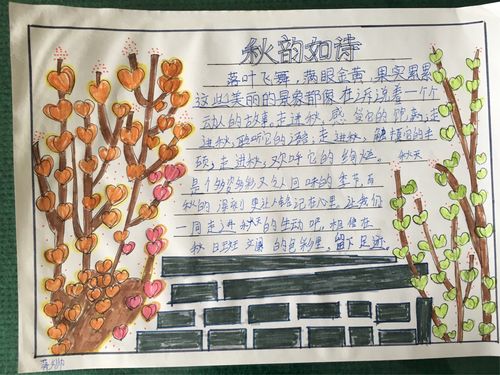 秋韵如诗
落叶飞舞,满眼金黄,果实累累
这些美丽的景象都像在诉说着一个个
动人的故事。走进秋,感受它的
走进秋,聆听它的 走进秋,触摸它的
走进秋,欢呼它的绚烂。
秋天
是个多姿多彩又令人回味的季节,而
秋的深刻更让人铭记在心里,让我们
一同走进秋天的生动吧,相信在
秋日斑斓的色彩里,留下足迹。